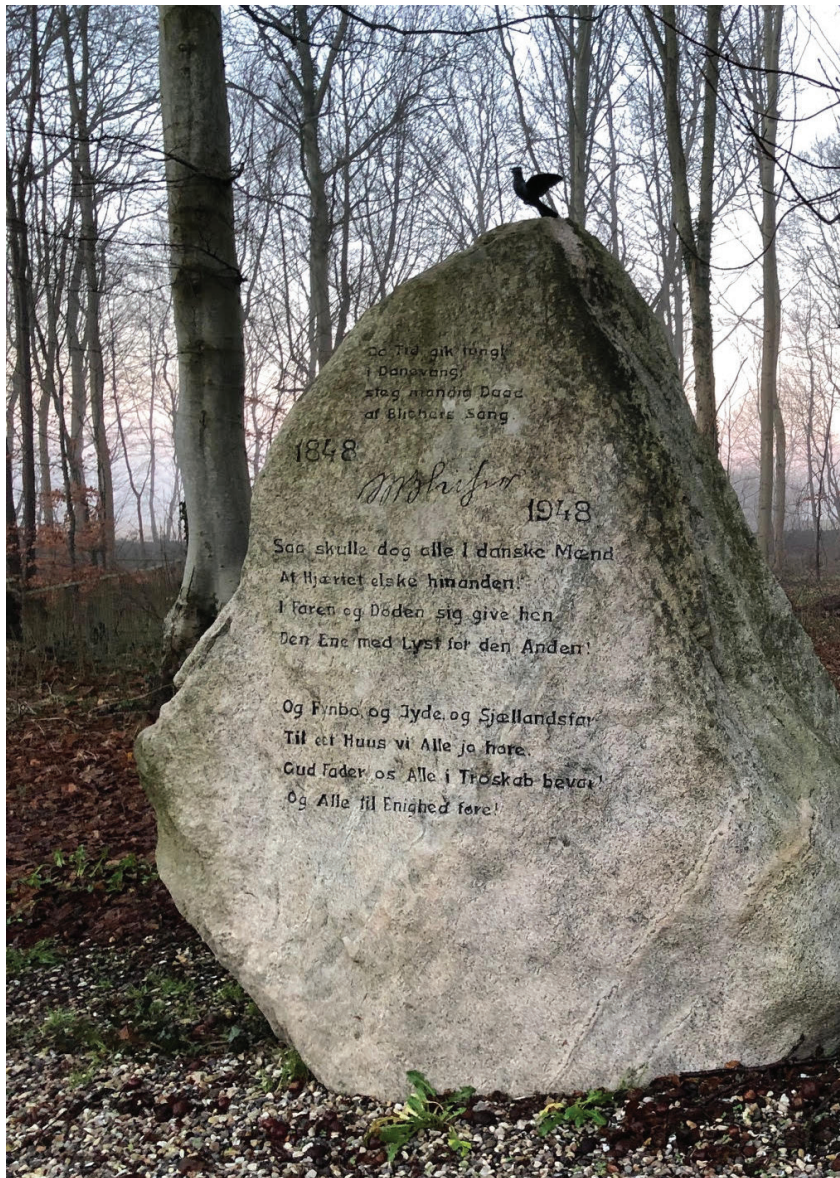 Da Tid gik tungt
i Danevang,
steg mandig Daad
af Blichers Sang.
1848
Blicher
1948
Saa skulle dog alle I danske Mænd
Af Hjærtet elske hinanden!
I Faren og Döden sig give hen
Den Ene med Lyst for den Anden!
Og Fynbo, og Jyde, og Sjællandsfar
Til eet Huus vi Alle jo høre.
Gud Fader os Alle i Troskab bevar!
Og Alle til Enighed føre!